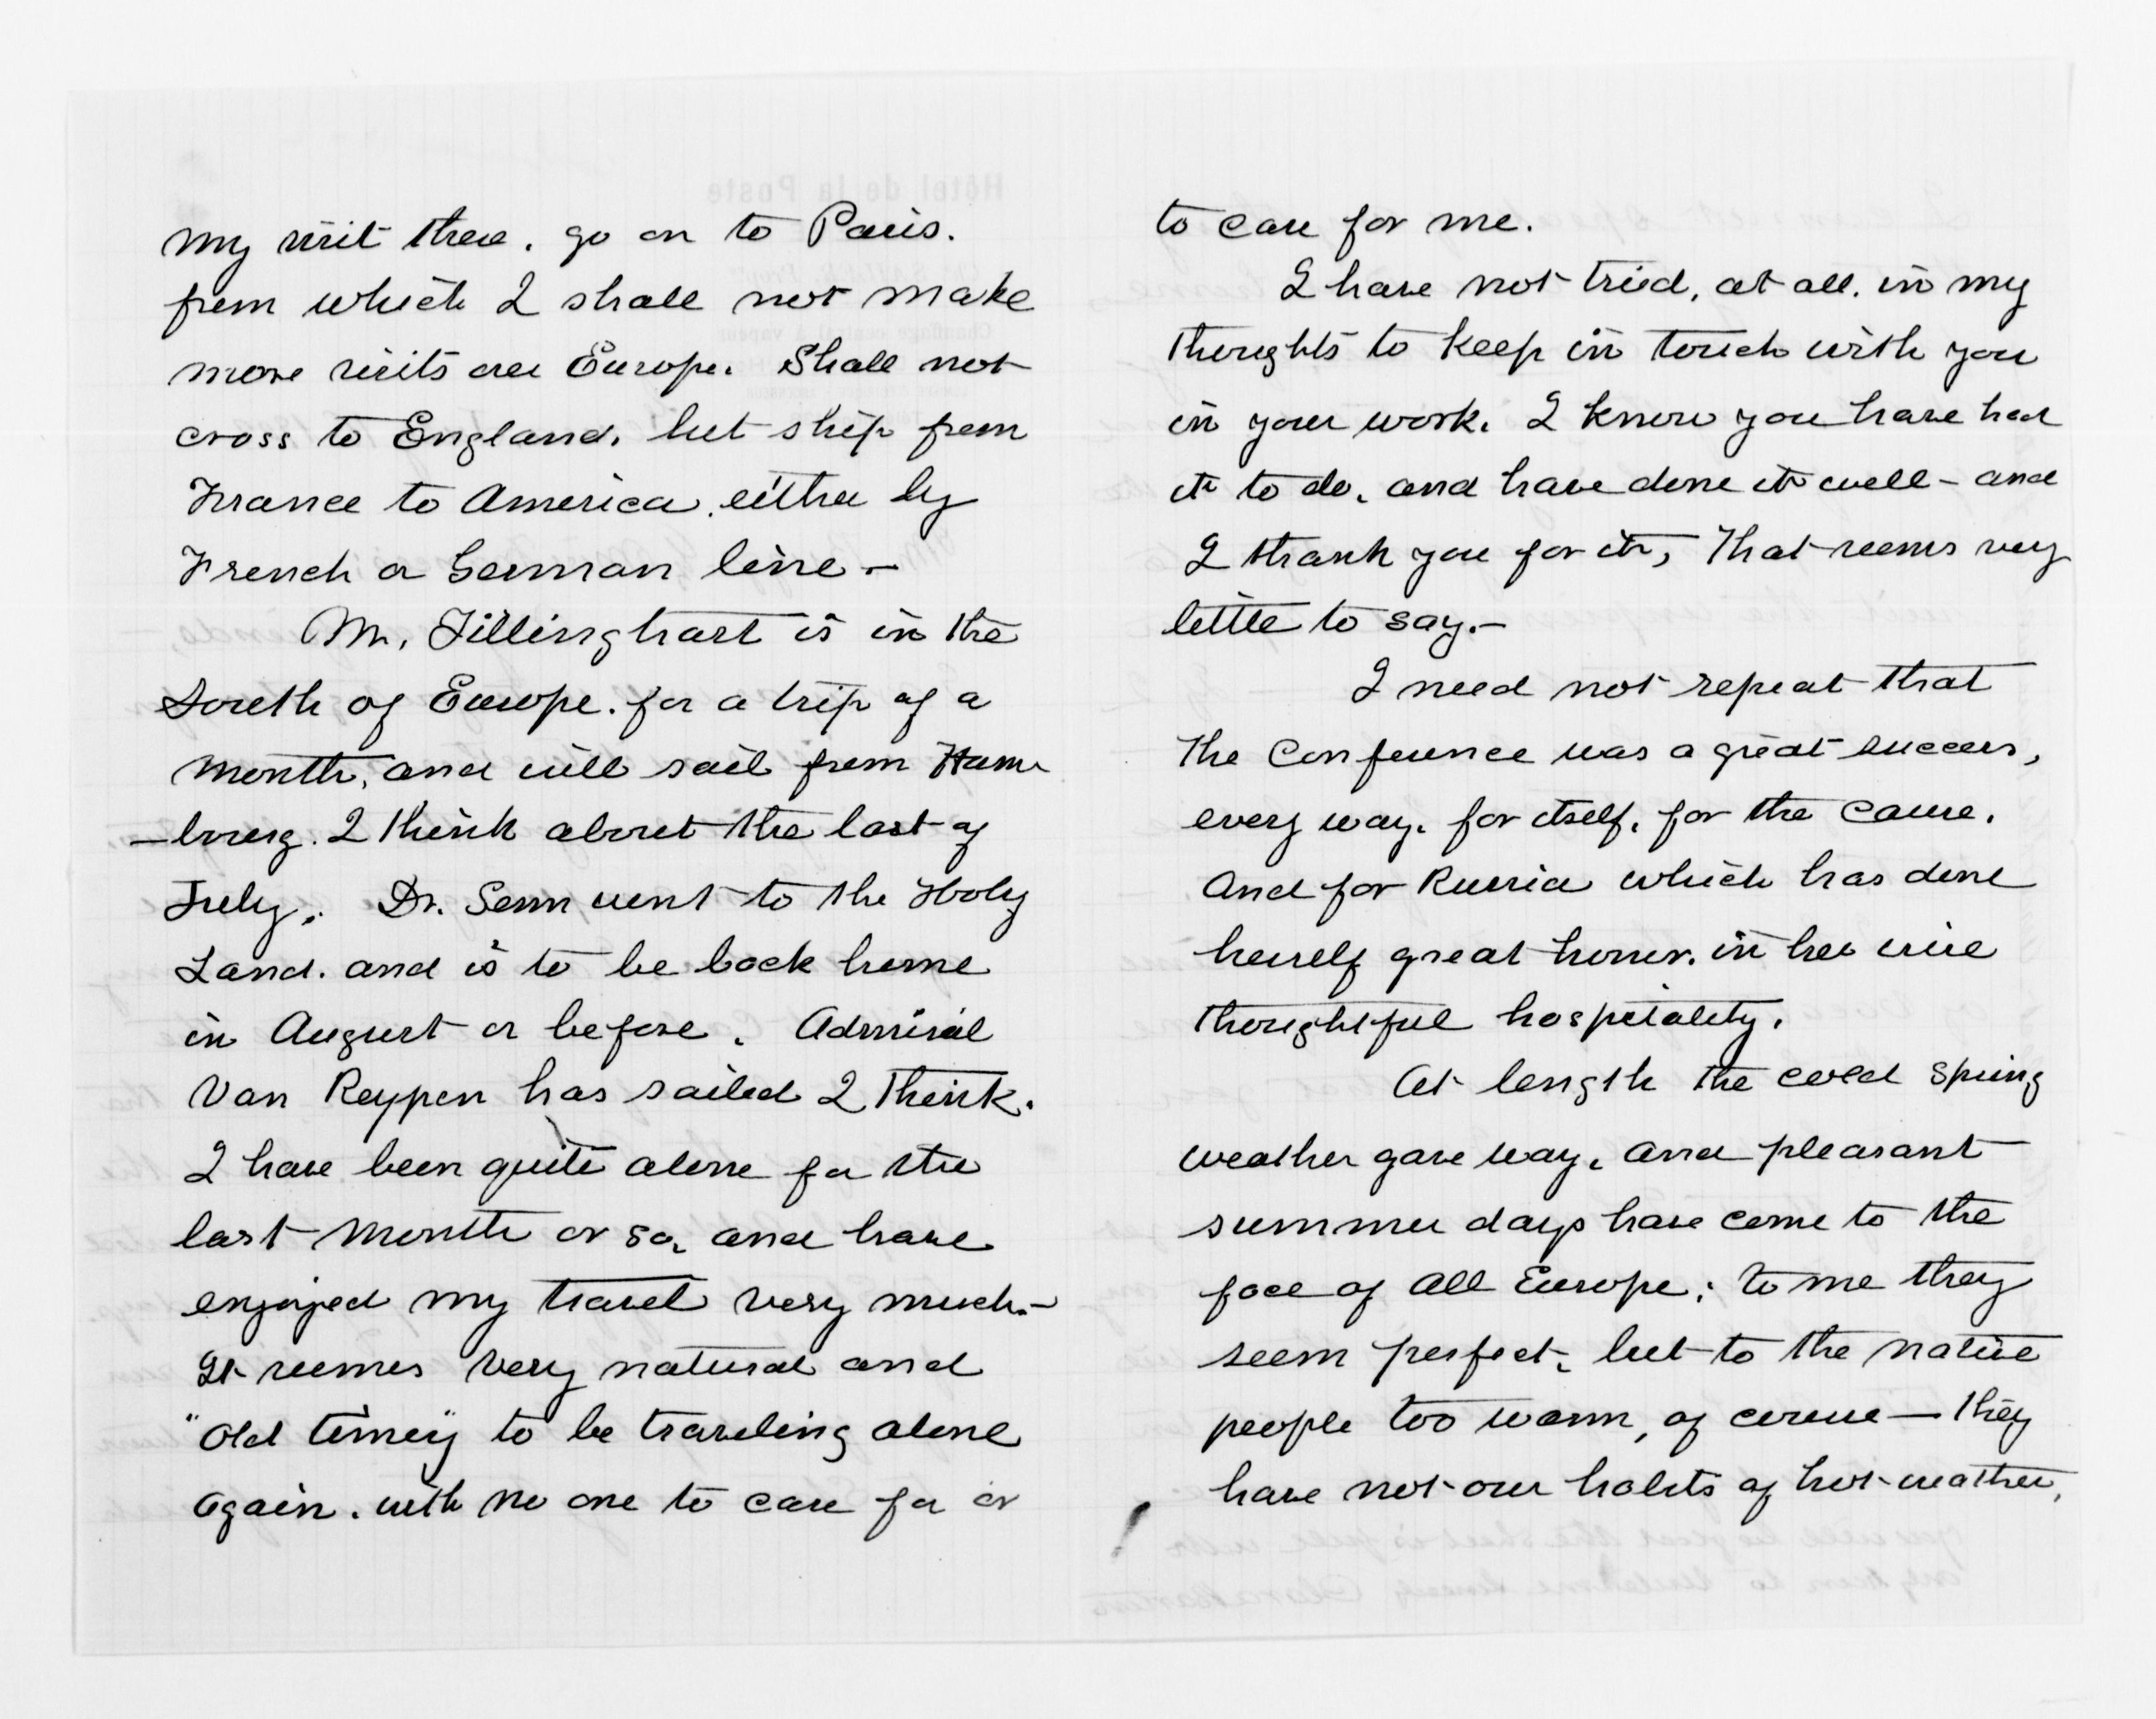 my visit there. go on to Paris.
from which I shall not make
more visits over Europe. Shall not
cross to England, but ship from
France to America, either by
French or German line –
Mr. Tillinghast is in the
South of Europe. for a trip of a
month, and will sail from Ham
–bourg. I think about the last of
July. Dr. Senn went to the Holy
Land. and is to be back home
in August or before. Admiral
Van Reypen has sailed I think.
I have been quite alone for the
last month or so, and have
enjoyed my travel very much.–
It seemes very natural and
"Old timey" to be traveling alone
again. with no one to care for or
to care for me.
I have not tried, at all. in my
thoughts to keep in touch with you
in your work. I know you have had
it to do. and have done it well – and
I thank you for it, That seems very
little to say.–
I need not repeat that
the Conference was a great success,
every way. for itself. for the cause.
And for Russia which has done
herself great honor. in her wise
thoughtful hospitality.
At length the cold spring
weather gave way. and pleasant
summer days have come to the
face of all Europe; to me they
seem perfect. but to the native
people too warm, of course — they
have not our habits of hot weather,